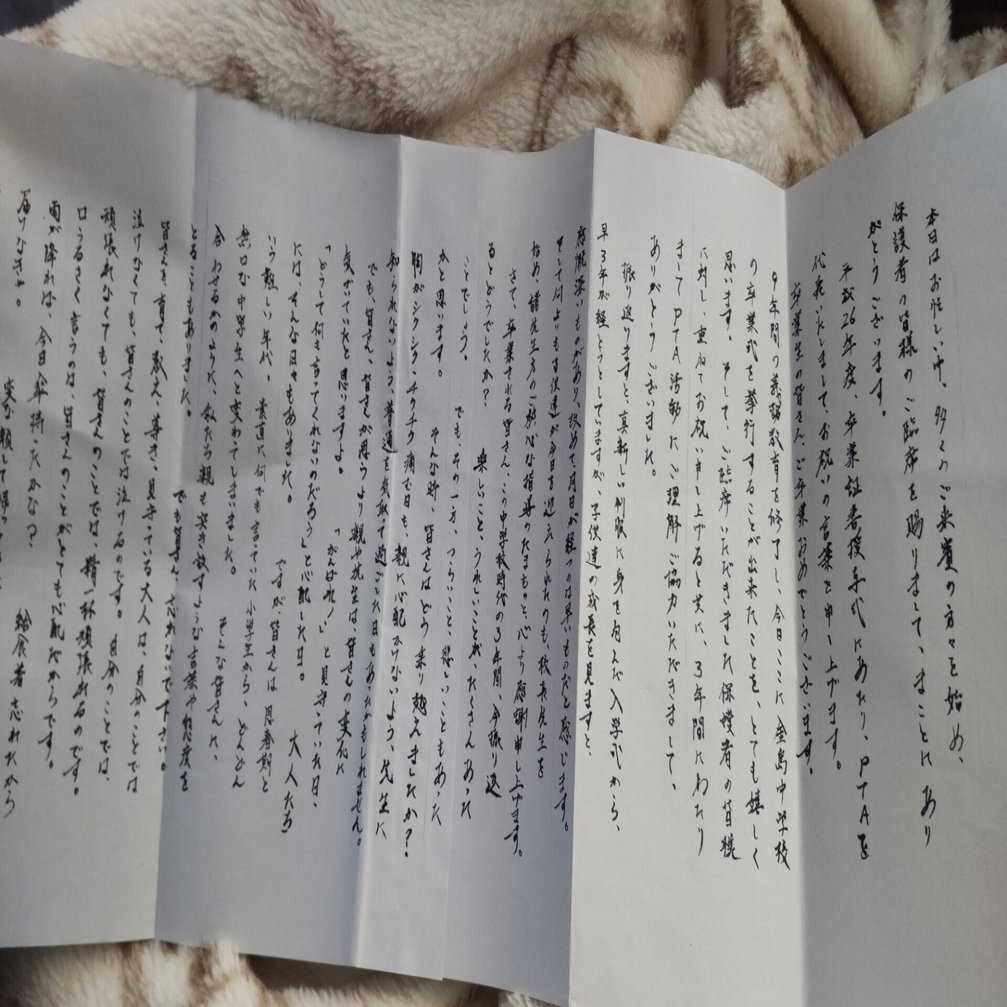 本日はお忙しい中、多々のご来賓の方々を始め、
保護者の皆様のご臨席を賜りまして、まことにあり
がとうございます。
平成26年度、卒業証書授与式にあたり、PTAを
代表いたしまして、お祝いの言葉を申し上げます。
卒業生の皆さん、ご卒業おめでとうございます。
9年間の義務教育を修了し、今日ここに 中学校
の卒業式を挙行することが出来たことを、とても嬉しく
思います。そして、ご臨席いただきました保護者の皆様
に対し、重ねてお祝い申し上げると共に、3年間にわたり
ましてPTA活動にご理解ご協力いただきまして、
ありがとうございました。
振り返りますと、真新しい制服に身を包んだ入学式から、
早3年が経とうとしていますが、子供達の成長を見ますと、
感慨深いものがあり、改めて月日が経つのは早いものだと感じます。
そして何よりも子供達が今日を迎えられたのも、校長先生を
始め、諸先生方のご熱心な指導のたまものと、心より感謝申し上げます。
さて、卒業される皆さん、この中学校時代の3年間、今振り返
るとどうでしたか? 楽しいこと、うれしいことが、たくさんあった
ことでしょう。 でも、その一方、つらいこと、悲しいこともあった
かと思います。 そんな時、皆さんはどう乗り越えましたか?
胸がシクシク、チクチク痛む日も、親に心配かけないよう、先生に
知られないよう普通を気取って過ごした日もあったかもしれません。
でも、皆さん、皆さんが思うより親や先生は、皆さんの変化に
気がついていたと思いますよ。 「がんばれ!」と見守っていた日、
「どうして何も言ってくれないのだろう」と心配した日。 大人たち
には、そんな日々もありました。 ですが、皆さんは思春期と
いう難しい年代。素直に何でも言っていた小学生から、どんどん
無口な中学生へと変わってしまいました。 そんな皆さんに、
合わせるかのように、私たち親も突き放すような言葉や態度を
とることもありました。 でも皆さん、忘れないで下さい。
皆さんを育て、教え、導き、見守っている大人は、自分のことでは
泣けなくても、皆さんのことでは泣けるのです。自分のことでは、
頑張れなくても、皆さんのことでは、精一杯頑張れるのです。
口うるさく言うのは、皆さんのことがとても心配だからです。
雨が降れば、今日、傘持ったかな? 給食着忘れたから
届けなきゃ。 変な顔して帰っ